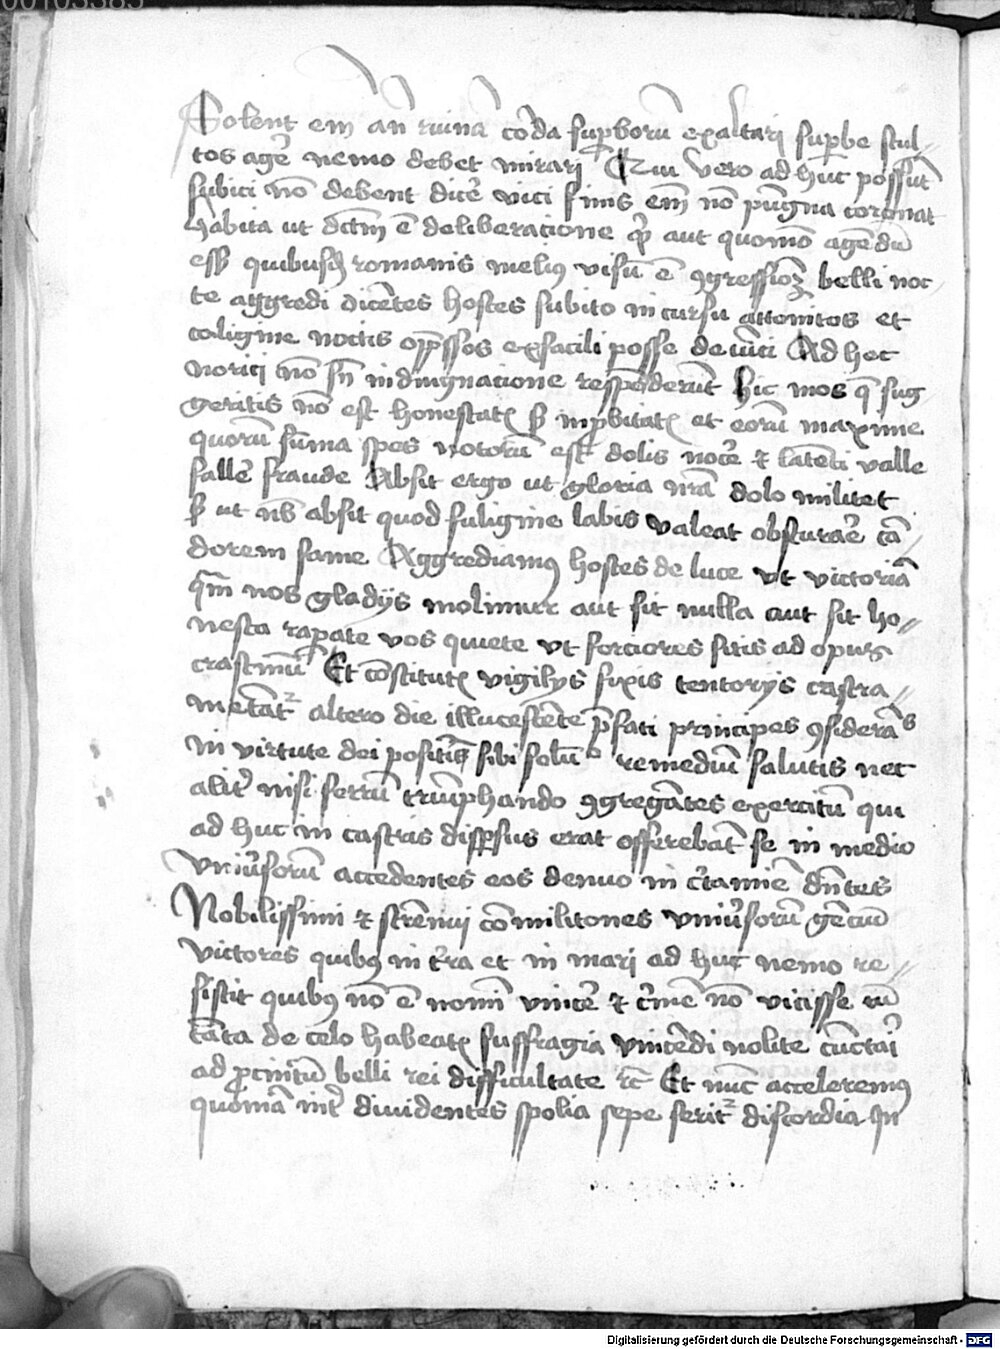 00103385
Solent em̄ an̄ ruinā corda sup̲borū exaltari sup̲be stul-
tos agē nemo debet mirari Qui vero ad huc possūt
subici nō debent dicē vici finis em̄ nō pūgna coronat
Habita ut dc̄m ē deliberacione qn̄ aut quomō agēdū
eſſ quibusdā romanis meliꝰ visū ē ꝯgressionē belli noc-
te aggredi dicētes hostes subito in cursu attonitos et
caligine noctis opp̄ssos exfacili posse deuīci Ad hec
norici nō sn̄ indingnacione respōderūt hic mos q̄ sug-
geritis nō est honestatis sꝫ inp̲bitatis et eorū maxime
quorū sūma spes notorū est dolis nocē ⁊ latēti valle
fallē fraude Absit ergo ut gloria nr̄a dolo militet
sꝫ ut nob̄ absit quod fuligine labis valeat obscurare cā-
dorem fame Aggrediamꝰ hostes de luce ut victoriā
qm̄ nos gladijs molimur aut sit nulla aut sit ho-
nesta rap̲ate vos quiete ut forciores sitis ad opus
crastinū Et cōstitutis vigilijs fixis tentorijs castra-
metāt᷑ altero die illucescēte p̄fati principes ꝯsiderās
in virtute dei positū sibi solū remediū salutis nec
alit᷑ nisi ferrū triūphando ꝯgregātes exercitū qui
ad huc in castris disp̲sus erat offerebāt se in medio
vniūsorū accedentes eos denuo in c̄tamīe dn̄tes
Nobilissimi ⁊ strēnui cōmilitones vniūsorū gēciū
victores quibꝰ in t̄ra et in mari ad huc nemo re-
sistit quibꝰ nō ē nomī vincē ⁊ c̄mē nō vicisse cū
tāta de celo habeatis suffragia vincēdi nolite cūctari
ad p̲cinctū belli rei difficultate ⁊c̄ Et nūc acceleremꝰ
quoniā int̄ diuidentes spolia sepe serit᷑ discordia In
Digitalisierung gefördert durch die Deutsche Forschungsgemeinschaft - DFG